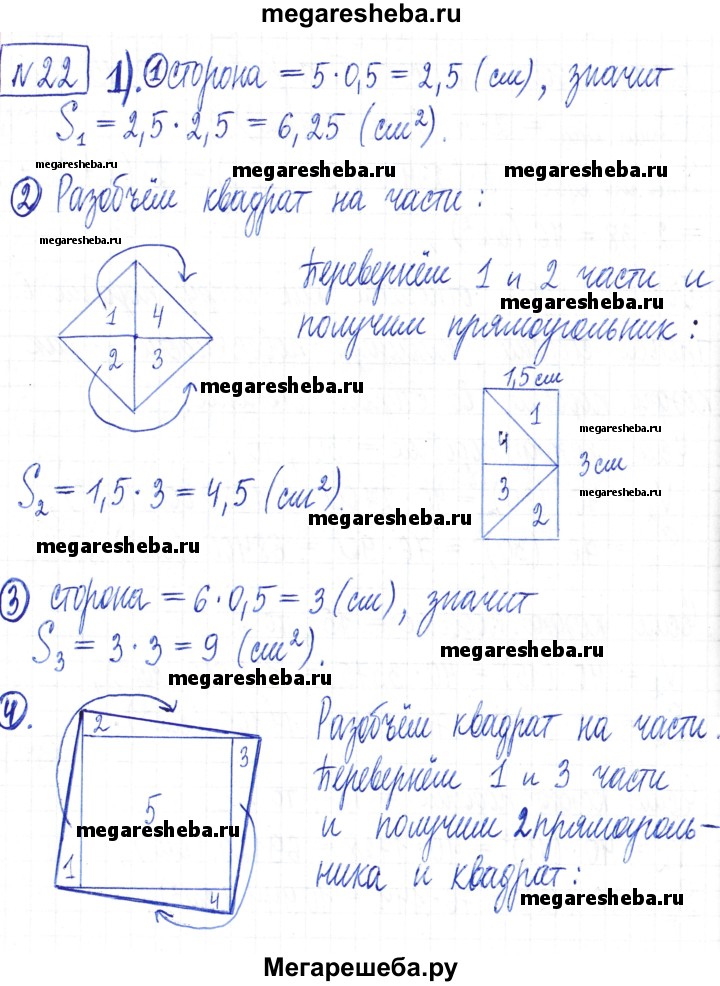 megaresheba.ru
№22 1). ① сторона = 5·0,5 = 2,5 (см), значит
S₁ = 2,5·2,5 = 6,25 (см²).
megaresheba.ru megaresheba.ru megaresheba.ru
② Разобъём квадрат на части:
megaresheba.ru
Перевернём 1 и 2 части и
megaresheba.ru
получим прямоугольник:
1 4
2 3
megaresheba.ru
1,5 см
1
4
3 см
3
2
megaresheba.ru
megaresheba.ru
megaresheba.ru
S₂ = 1,5·3 = 4,5 (см²).
megaresheba.ru
megaresheba.ru
③ сторона = 6·0,5 = 3 (см), значит
S₃ = 3·3 = 9 (см²).
megaresheba.ru
megaresheba.ru
④.
2
3
5
megaresheba.ru
1
4
Разобъём квадрат на части.
Перевернём 1 и 3 части
megaresheba.ru
и получим 2 прямоуголь-
ника и квадрат:
megaresheba.ru
Мегарешеба.ру